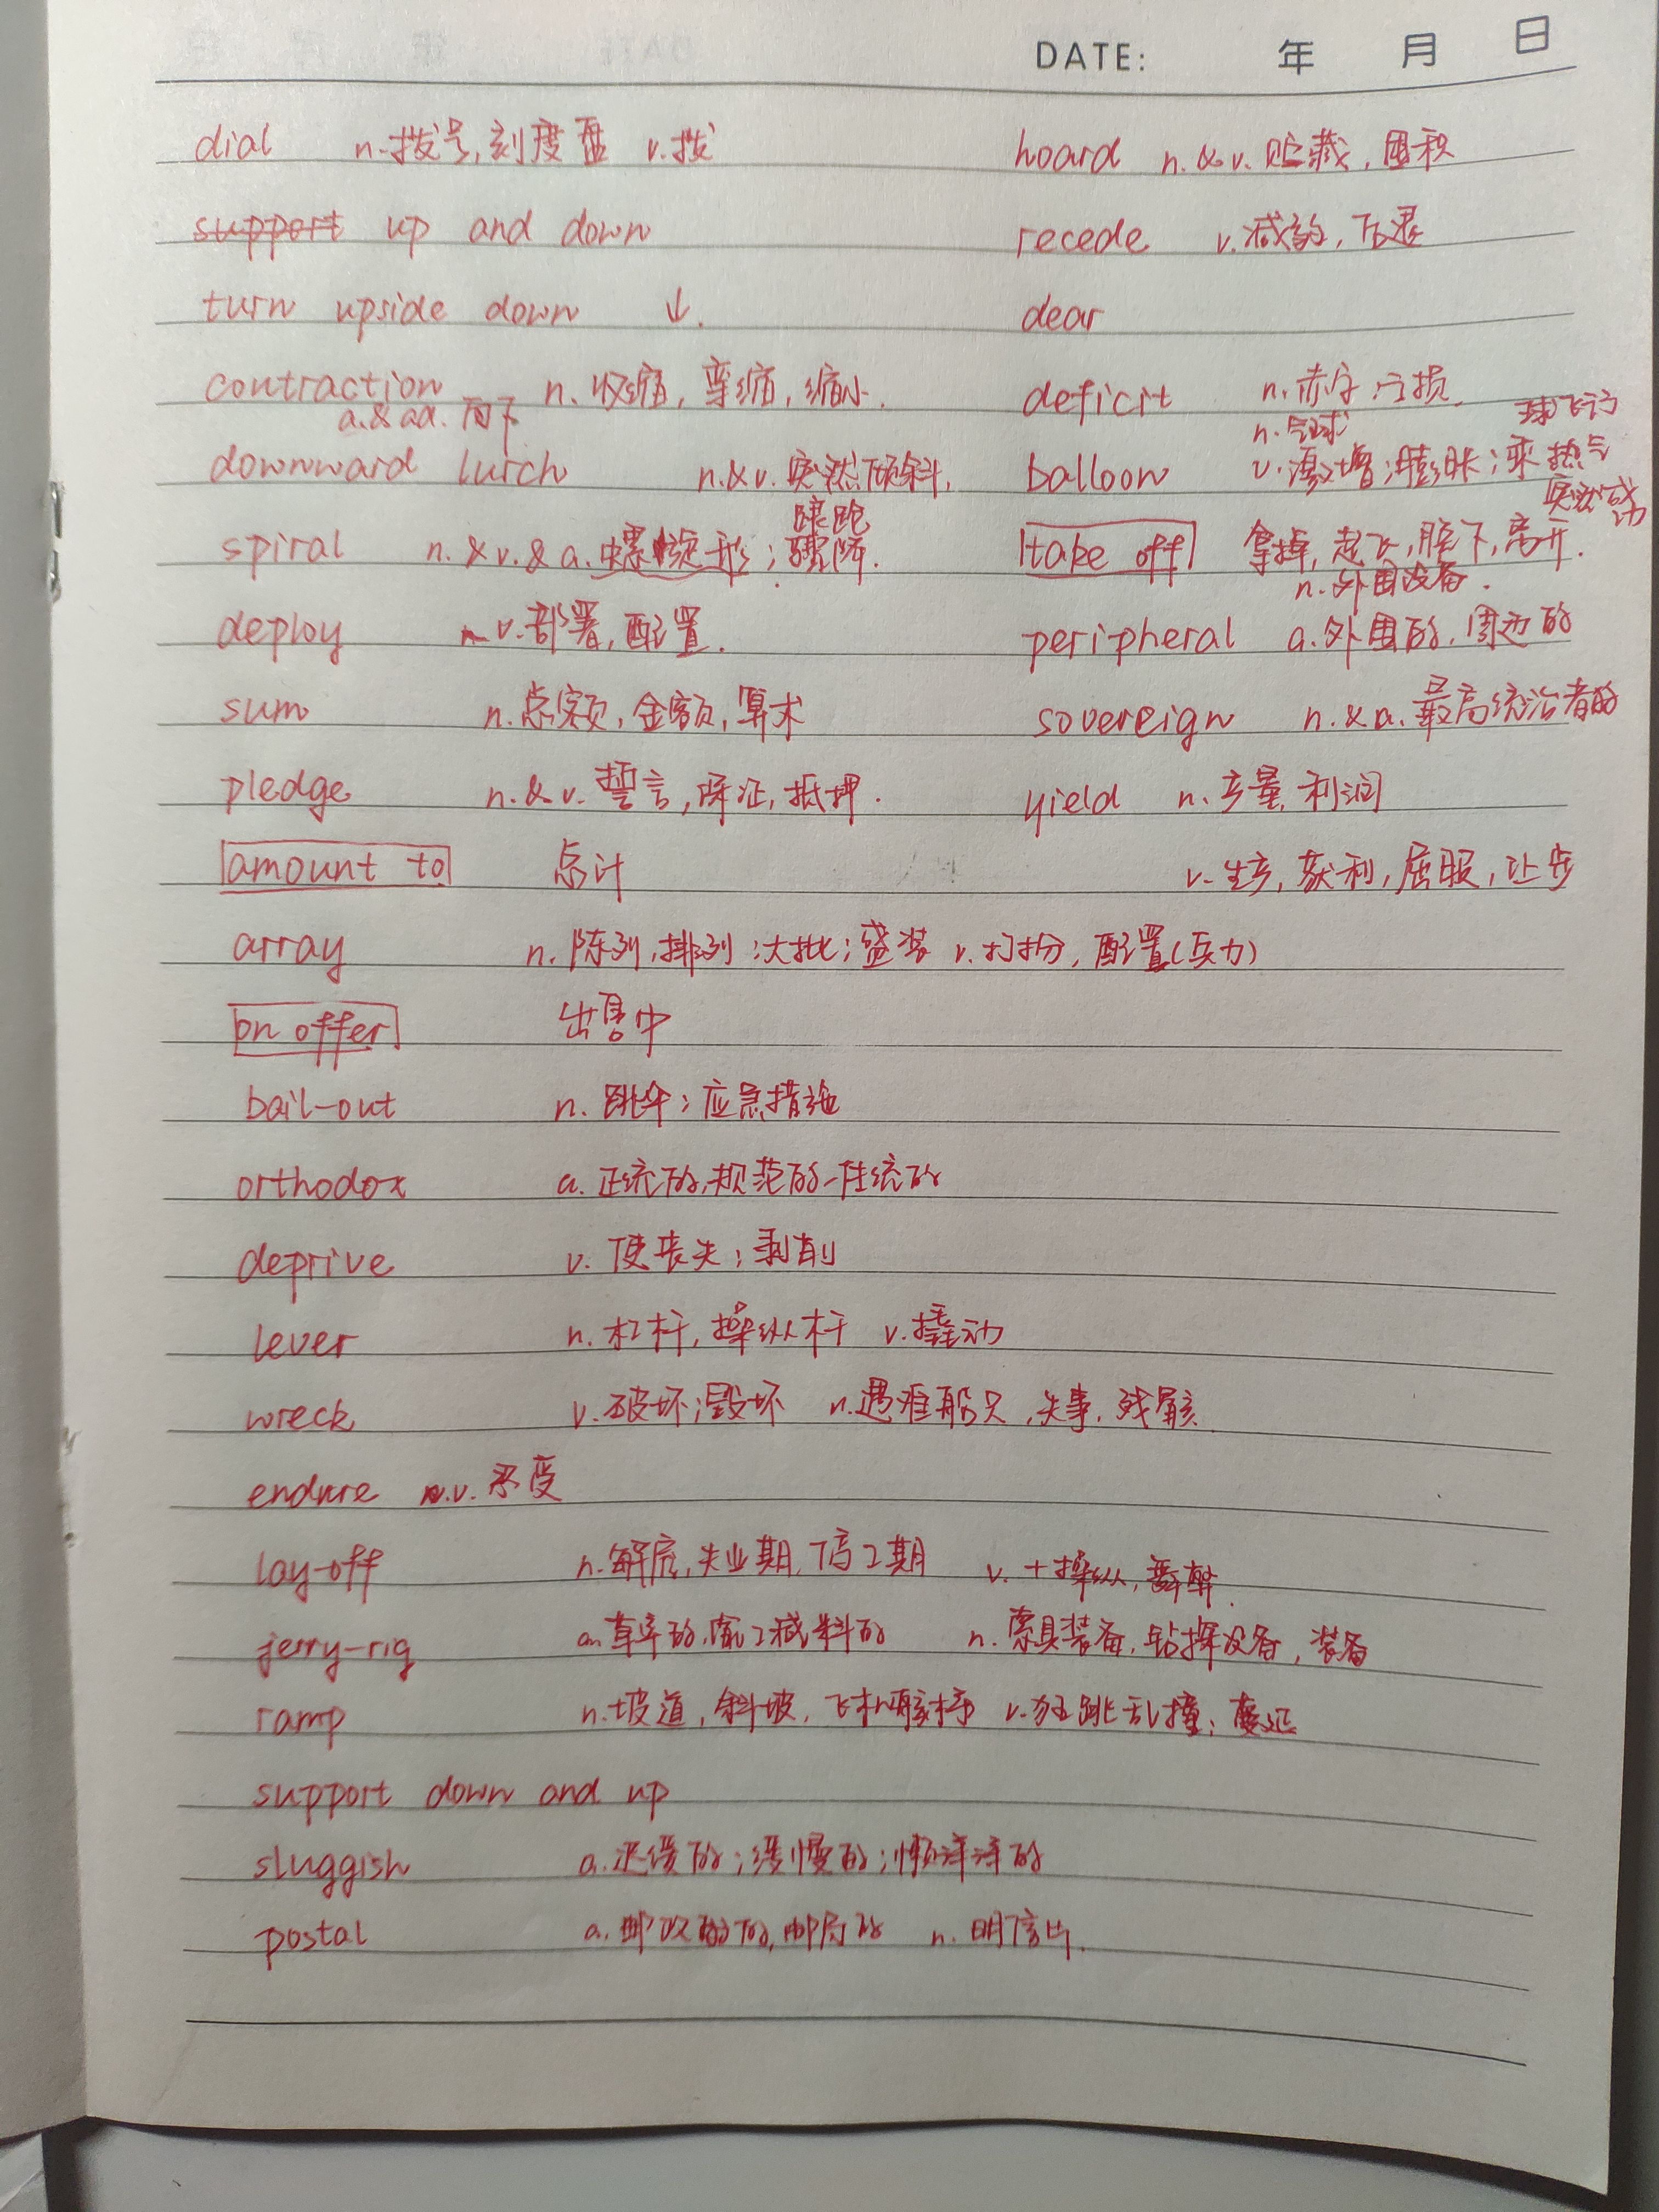 DATE: 年 月 日
dial n.拨号,刻度盘 v.拨
support up and down
turn upside down ↓.
contraction n.收缩,挛缩,缩小.
a.&ad.向下
downward lurch n.&v.突然倾斜,
踉跄
spiral n.&v.&a.螺旋形;骤降.
deploy v.部署,配置.
sum n.总额,金额,算术
pledge n.&v.誓言,保证,抵押.
amount to 总计
array n.陈列,排列;大批;盛装 v.打扮,配置(兵力)
on offer 出售中
bail-out n.跳伞;应急措施
orthodox a.正统的,规范的,传统的
deprive v.使丧失;剥削
lever n.杠杆,操纵杆 v.撬动
wreck v.破坏;毁坏 n.遇难船只,失事,残骸.
endure n.v.忍受
lay-off n.解雇,失业期,停工期 v.+操纵,
jerry-rig a.草率的,偷工减料的 n.索具装备,钻探设备,装备
ramp n.坡道,斜坡, v.狂跳乱撞;蔓延
support down and up
sluggish a.迟缓的;缓慢的;懒洋洋的
postal a.邮政的,邮局的 n.明信片.
hoard n.&v.贮藏,囤积
recede v.减弱,后退
dear
deficit n.赤字,亏损.
n.气球 球飞行
balloon v.激增;膨胀;乘热气
突然成功
take off 拿掉,起飞,脱下,离开.
n.外围设备.
peripheral a.外围的,周边的
sovereign n.&a.最高统治者的
yield n.产量,利润
v.生产,获利,屈服,让步